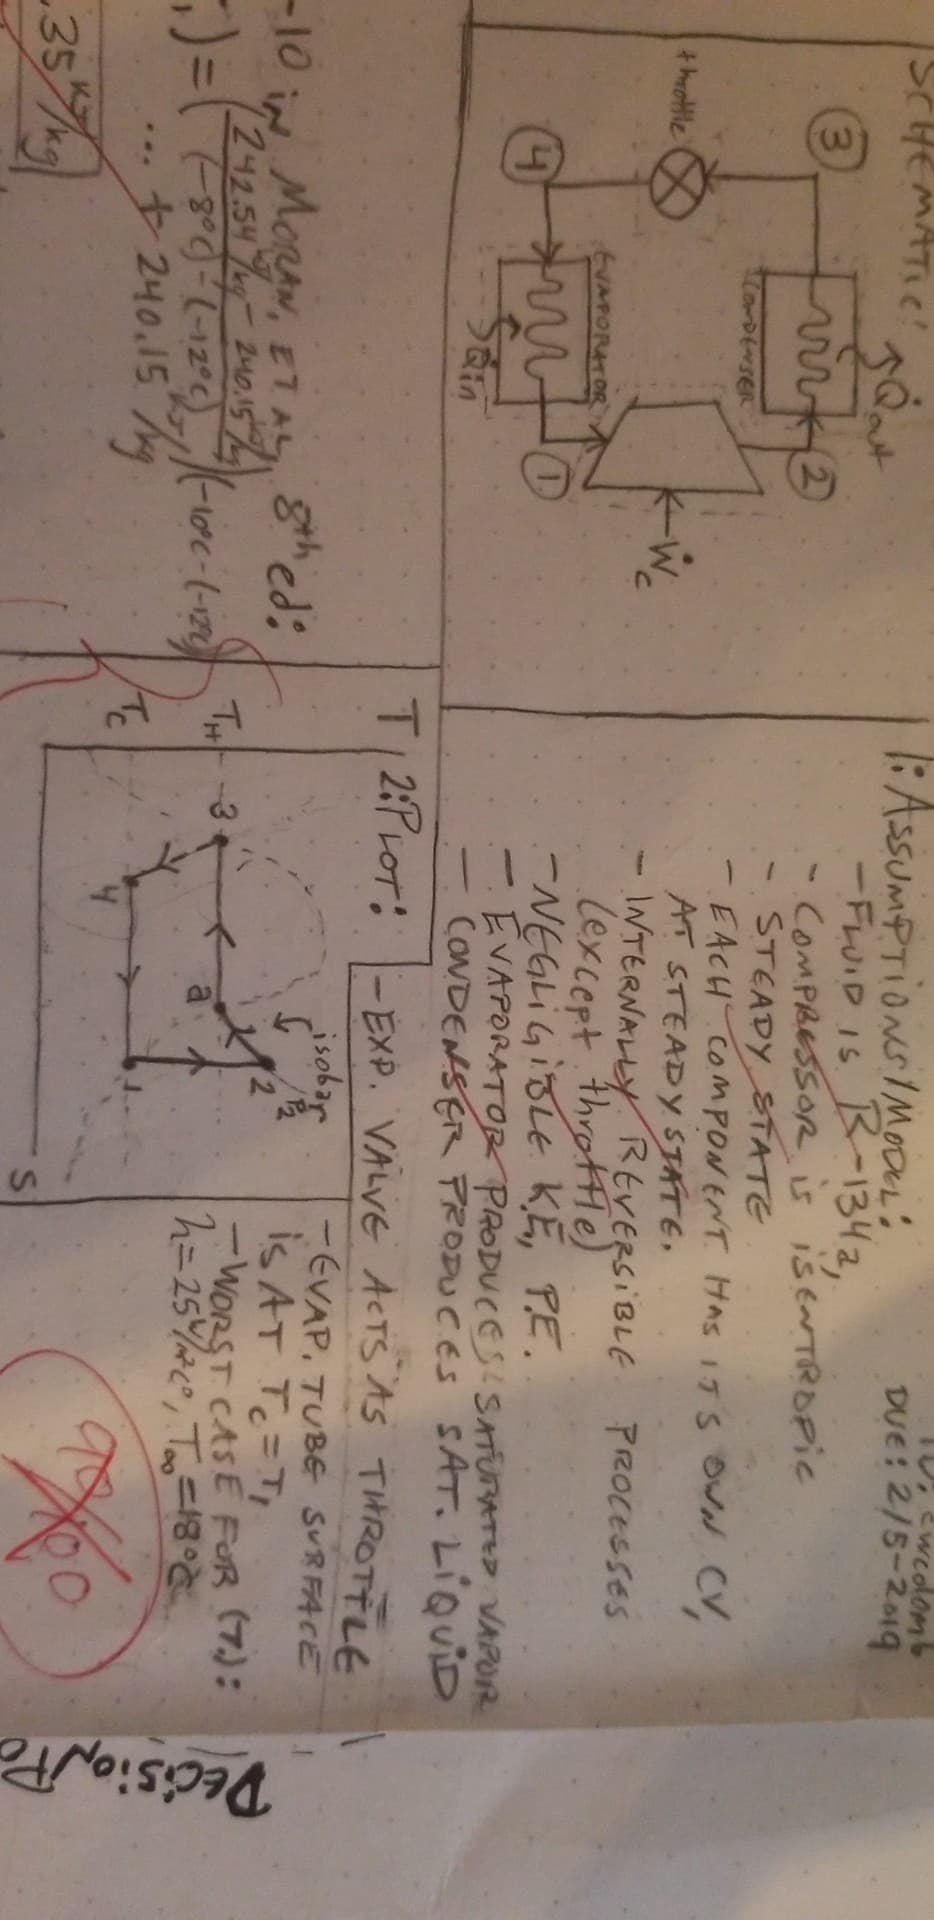 SCHEMATIC:
Q̇out
③
②
CONDENSER
throttle
Ẇc
EVAPORATOR
④
①
Qin
DUE: 2/5-2019
1: ASSUMPTIONS/MODEL:
- FLUID IS R-134a,
- COMPRESSOR is iSENTROPIC
- STEADY STATE
- EACH COMPONENT HAS ITS OWN CV,
AT STEADY STATE.
- INTERNALLY REVERSIBLE PROCESSES
(except throttle)
- NEGLIGIBLE KE, PE.
- EVAPORATOR PRODUCES SATURATED VAPOR
- CONDENSER PRODUCES SAT. LIQUID
- EXP. VALVE ACTS AS THROTTLE
- EVAP. TUBE SURFACE
iS AT Tc = T1
- WORST CASE FOR (T1):
h = 25 W/m²C°, T∞ = 18°C
2: PLOT:
T
isobar
P2
TH
3
a
2
TC
4
1
S
-10 iN MORAN, ET AL, 8th ed:
) = (242.54 kJ/kg - 240.15 kJ/kg
(-8°C) - (-12°C) )(-10°C - (-12°C)
... + 240.15 kJ/kg
.35 kJ/kg
90/100